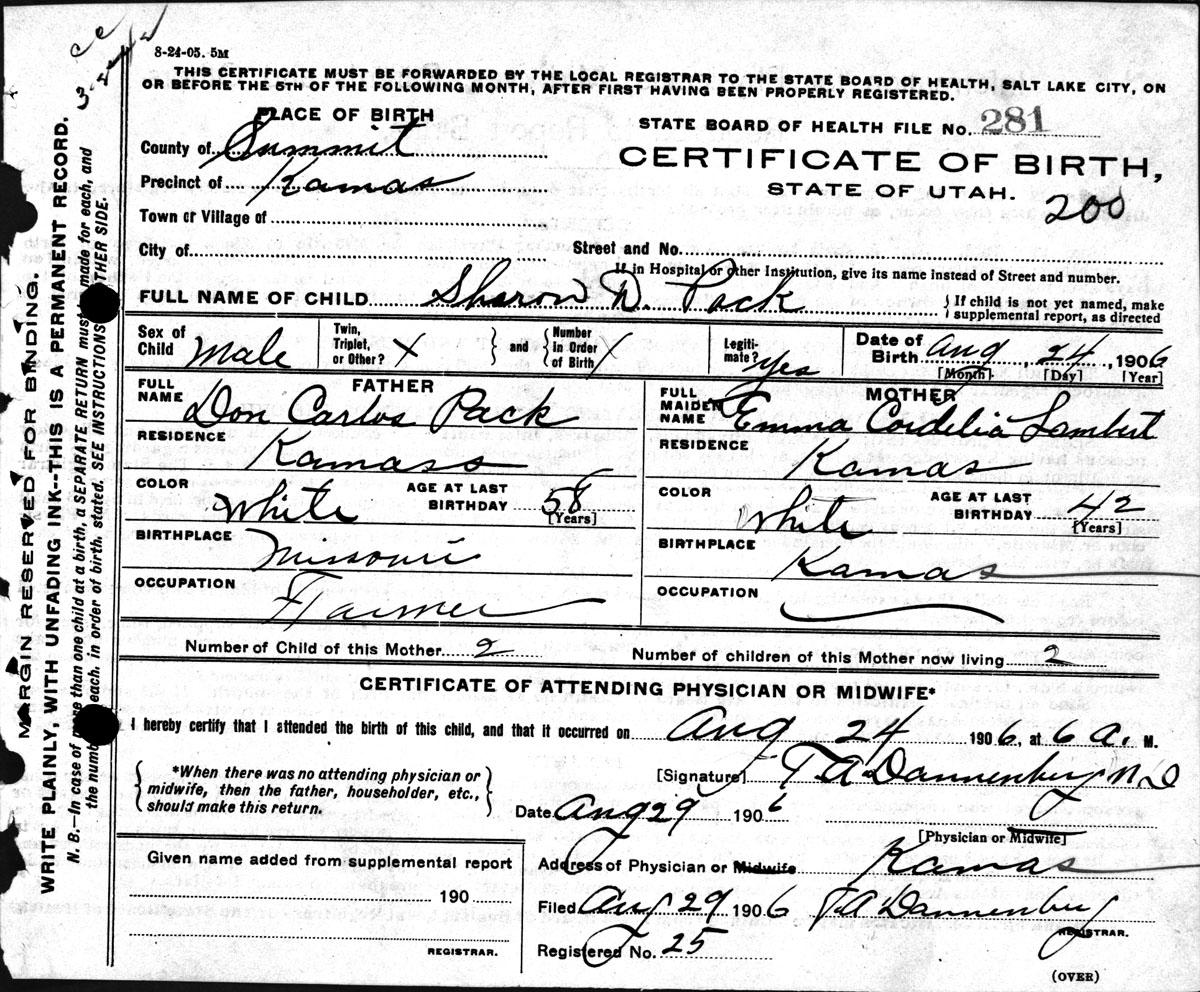 8-24-05. 5M
THIS CERTIFICATE MUST BE FORWARDED BY THE LOCAL REGISTRAR TO THE STATE BOARD OF HEALTH, SALT LAKE CITY, ON
OR BEFORE THE 5TH OF THE FOLLOWING MONTH, AFTER FIRST HAVING BEEN PROPERLY REGISTERED.
PLACE OF BIRTH
STATE BOARD OF HEALTH FILE No. 281
County of Summit
CERTIFICATE OF BIRTH,
Precinct of Kamas
STATE OF UTAH.
200
Town or Village of
City of Street and No.
If in Hospital or other Institution, give its name instead of Street and number.
FULL NAME OF CHILD Sharon D. Pack {If child is not yet named, make supplemental report, as directed
Sex of Child Male Twin, Triplet, or Other? X } and { Number in Order of Birth / Legitimate? Yes Date of Birth Aug 24, 1906
[Month] [Day] [Year]
FATHER
FULL NAME Don Carlos Pack
RESIDENCE Kamass
COLOR White AGE AT LAST BIRTHDAY 58
[Years]
BIRTHPLACE Missouri
OCCUPATION Farmer
MOTHER
FULL MAIDEN NAME Emma Cordelia Lambert
RESIDENCE Kamas
COLOR White AGE AT LAST BIRTHDAY 42
[Years]
BIRTHPLACE Kamas
OCCUPATION
Number of Child of this Mother 2 Number of children of this Mother now living 2
CERTIFICATE OF ATTENDING PHYSICIAN OR MIDWIFE*
I hereby certify that I attended the birth of this child, and that it occurred on Aug 24 1906, at 6 a. M.
{*When there was no attending physician or
midwife, then the father, householder, etc.,
should make this return.}
[Signature] T A Dannenberg M D
Date Aug 29 1906
[Physician or Midwife]
Given name added from supplemental report
190
REGISTRAR.
Address of Physician or Midwife Kamas
Filed Aug 29 1906 T A Dannenberg
REGISTRAR.
Registered No. 25
(OVER)
MARGIN RESERVED FOR BINDING.
WRITE PLAINLY, WITH UNFADING INK--THIS IS A PERMANENT RECORD.
N. B.--In case of more than one child at a birth, a SEPARATE RETURN must be made for each, and
the number of each, in order of birth, stated. SEE INSTRUCTIONS OTHER SIDE.